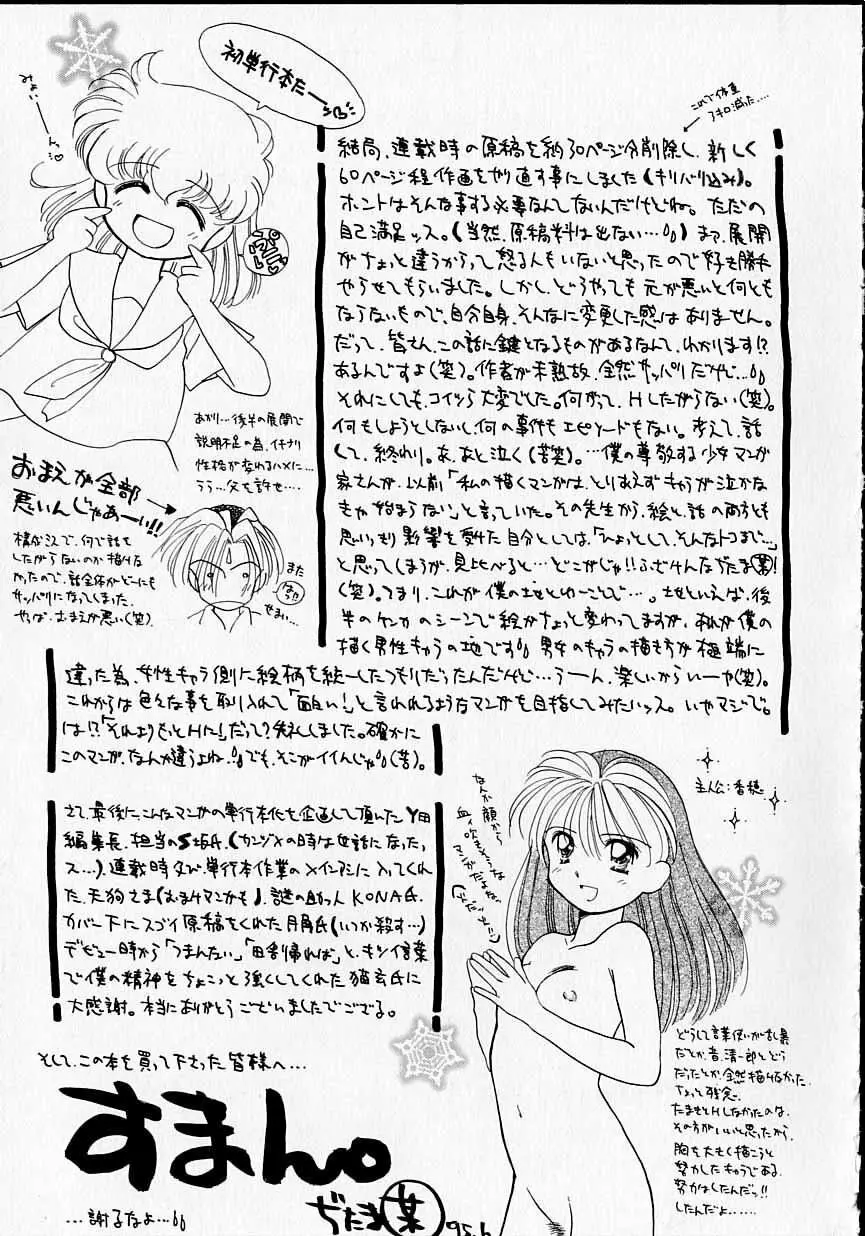 初単行本だー
みょい
んっ
これで体重
7キロ減った....
結局、連載時の原稿を約30ページ分削除し、新しく
60ページ程作画をやり直す事にしました(キリバリ込み)。
ホントはそんな事する必要なんてないんだけどね。ただの
自己満足ッス。(当然、原稿料は出ない…)まっ、展開
がちょっと違うからって怒る人もいないと思ったので好き勝手
やらせてもらいました。しかし、どうやっても元が悪いと何とも
ならないもので、自分自身、そんなに変更した感はありません。
だって、皆さん、この話に鍵となるものがあるなんて、わかります!?
あるんですよ(笑)。作者が未熟故、全然サッパリだけど…
それにしても、コイツら大変でした。何がって、Hしたがらない(笑)。
何もしようとしないし、何の事件もエピソードもない。考えて、話
して、終わり。あ、あと泣く(苦笑)。…僕の尊敬する少女マンガ
家さんが、以前「私の描くマンガは、とりあえずキャラが泣かな
きゃ始まらない」と言っていた。その先生から、絵と話のあたりとも
思いっきり影響を受けた自分としては、「ひょっとして、そんなトコまで…」
と思ってしまうが、見比べると…どこがじゃ!!ふざけんなぢたま(某)!
(笑)。つまり、これが僕の地とゆーことで…。地といえば、後
半のケンカのシーンで絵がちょっと変わってますが、あれが僕の
描く男性キャラの地です 男女のキャラの描き方が極端に
違った為、女性キャラ側に絵柄を統一したつもりだったんだけど…うーん、楽しいからいーや(笑)。
これからは色々な事を取り入れて「面白い!」と言われるようなマンガを目指してみたいッス。いやマジで。
は!?「それよりもっとHに!」だって?失礼しました。確かに
このマンガ、なんか違うよね。でも、そこがイイんじゃ(苦)。
あかり…後半の展開で
説明不足の為、イキナリ
性格が変わるハメに…
うぅ…父を許せ....
おまえが全部
悪いんじゃあーい!!
構成上で、何で話を
したがらないのか描けな
かったので、話全体がどーにも
サッパリになってしまった。
やっぱ、おまえが悪い(笑)
また
せまい…
さて、最後に、こんなマンガの単行本化を企画して頂いたY田
編集長、担当のS坂氏、(カンヅメの時は世話になったッ
ス…)、連載時及び、単行本作業のメインアシに入ってくれ
た、天狗さま(おまけマンガも)、謎の助っ人KONA氏、
カバー下にスゴイ原稿をくれた月角氏(いつか殺す…)
デビュー時から「つまんない」「田舎帰れば」と、キツイ言葉
で僕の精神をちょこっと強くしてくれた猫玄氏に
大感謝。本当にありがとうございましたでござる。
主人公:香穂
なんか顔から
血ィ吹きそうな
マンガだよね
どうして言葉使いが乱暴
だとか、昔、清一郎とどう
だったとか、全然描けなかった。
ちょっと残念。
たまきとHしなかったのは、
その方がいいと思ったから。
胸を大きく描こうと
努力したキャラである。
努力はしたんだっ!!
したんだよ……
そして、この本を買って下さった皆様へ…
すまん。
…謝るなよ…
ぢたま(某)
95.6